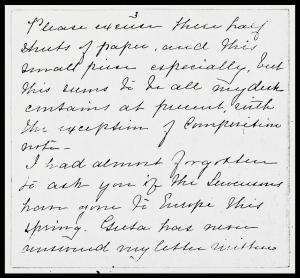 3
Please excuse these half
sheets of paper, and this
small piece especially, but
this seems to be all my desk
contains at present, with
the exception of Composition
note—
I had almost forgotten
to ask you if the
have gone to Europe this
spring. has never
answered my letter written